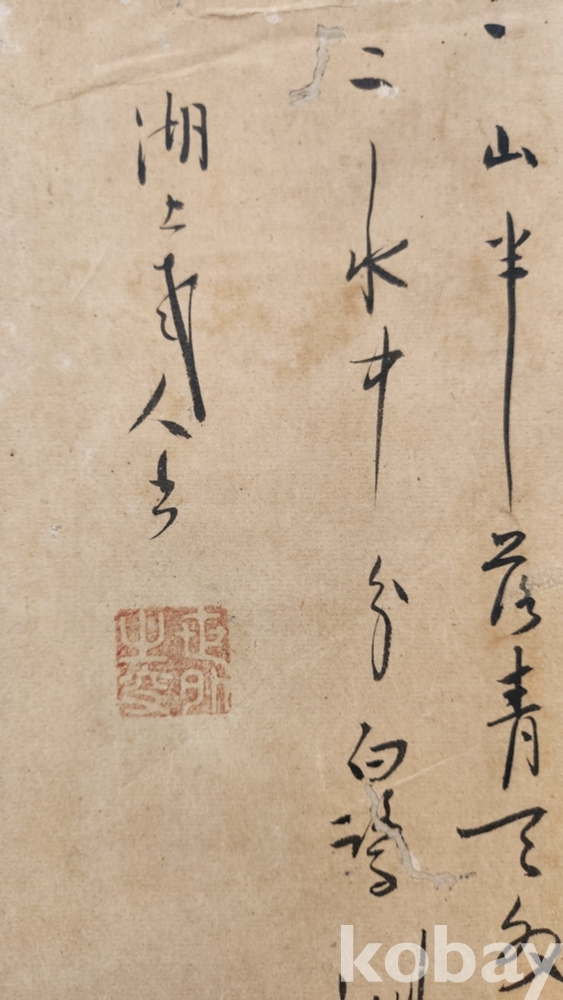 山半落青天外
二水中分白鷺
湖上人書
kobay